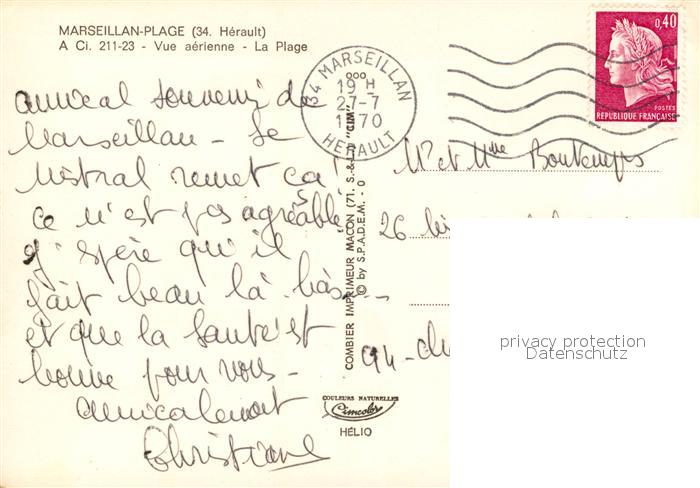 MARSEILLAN-PLAGE (34. Hérault)
A Ci. 211-23 - Vue aérienne - La Plage
amical souvenir de
Marseillan - Le
Mistral remet ça !
ce n'est pas agréable
j'espère qu'il
fait beau là-bas
et que la santé est
bonne pour vous -
Amicalement
Christiane
COMBIER IMPRIMEUR MACON (71. S.-&-L.) "CIM"
© by S.P.A.D.E.M. - 0
COULEURS NATURELLES
Cimcolor
HÉLIO
34 MARSEILLAN
19 H
27-7
1970
HERAULT
0,40
POSTES
REPUBLIQUE FRANÇAISE
Mr et Mme Bontemps
26 bis
94 -
privacy protection
Datenschutz